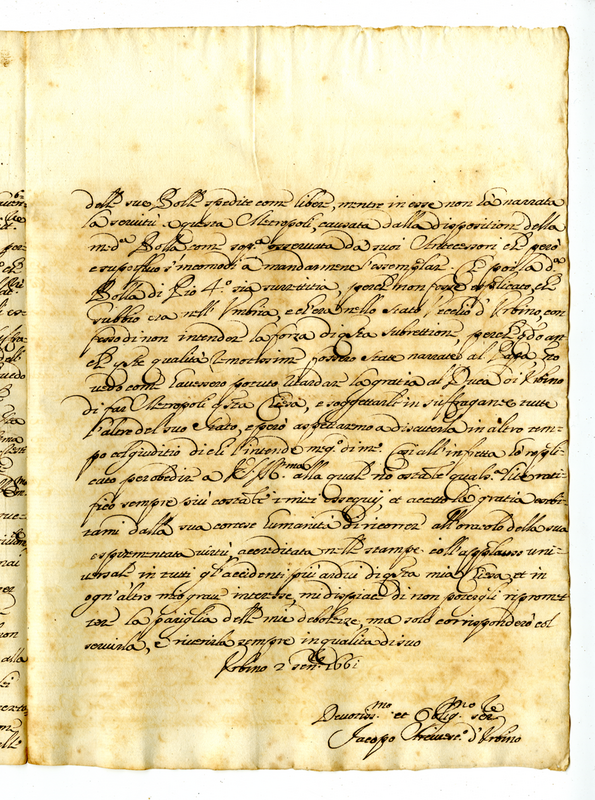 delle sue Bolle spedite come libere, mentre in esse non là narrata
la servitù a questa Metropoli, causata dalla disposition della
med.ª Bolla come sop.ª osservata da suoi Antecessori et però
e superfluo s'incomodi à mandarmene l'essemplare. Che poi sa d.ª
Bolla di Pio 4.º sia surrettitia, perche non fosse esplicato, che
Gubbio era nell'Umbria, e ch'era nello Stato Eccl.co d'Urbino, con
fesso di non intender la forza di q.sta subrettione, perche q.do an
che q.ste qualità remotissime fossero state narrate al Papa no
vedo come l'havessero potuto ritardare la gratia al Duca di Urbino
di far Metropoli q.sta Chiesa, e soggettarli in suffraganee tutte
l'altre del suo stato, e però aspettaremo à discuterla in altro tem-
po col giuditio di chi l'intende meg.º di me. Così all'infretta hò repli
cato per obedire à V.S. Ill.ma alla quale no ostante quals.a lite rati-
fico sempre più costanti i miei ossequij, et accetto la gratia
tami dalla sua cortese humanità di ricorrere all'oracolo della sua
esperimentata virtù, accreditata nelle stampe coll'applauso uni-
versale in tutti gl'accidenti più ardui di q.sta mia Chiesa, et in
ogn'altro mio grave interesse, mi dispiace di non potergli ripromet
tere la pariglia delle mie debolezze, ma solo corrisponderò col
servirla, e riverirla sempre in qualità di suo
Urbino 2 1661
Devotiss.mo et Oblig.mo se.re
Jacopo Arcivesc.º d'Urbino